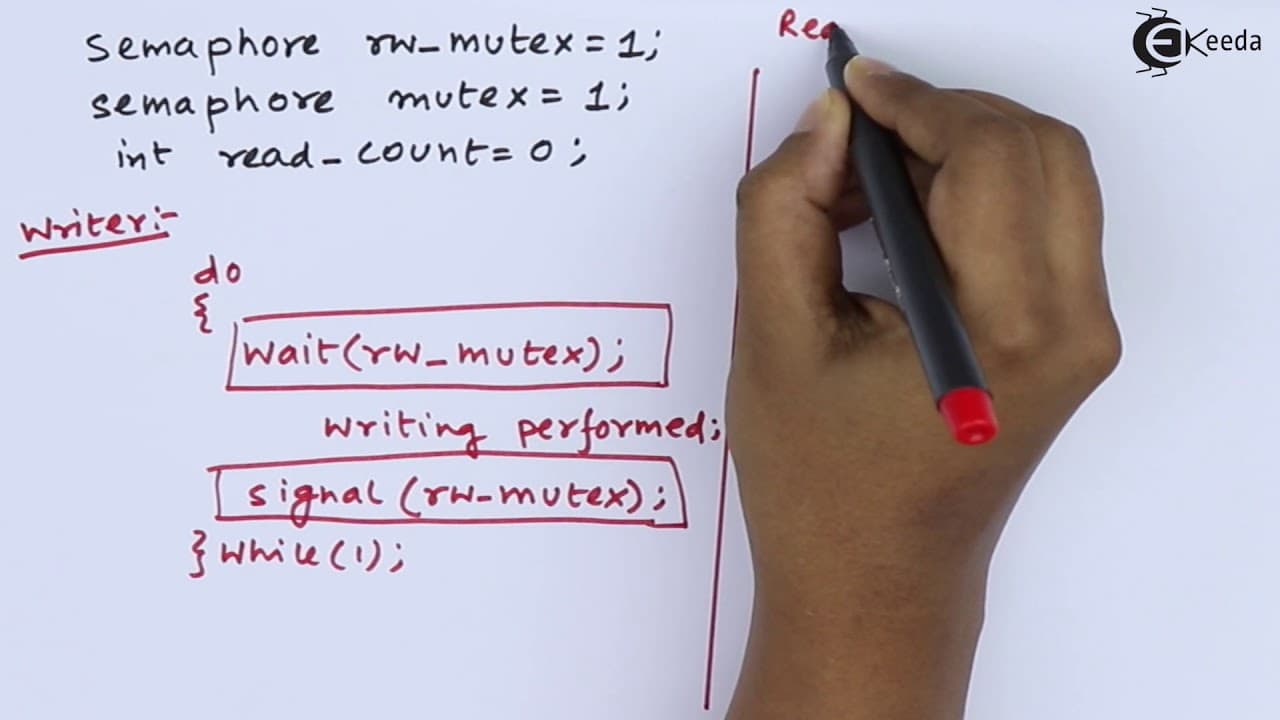 semaphore rw_mutex = 1;
semaphore mutex = 1;
int read_count = 0;
Writer:-
do
{
wait(rw_mutex);
writing performed;
signal(rw_mutex);
} while(1);
Rea
EKeeda